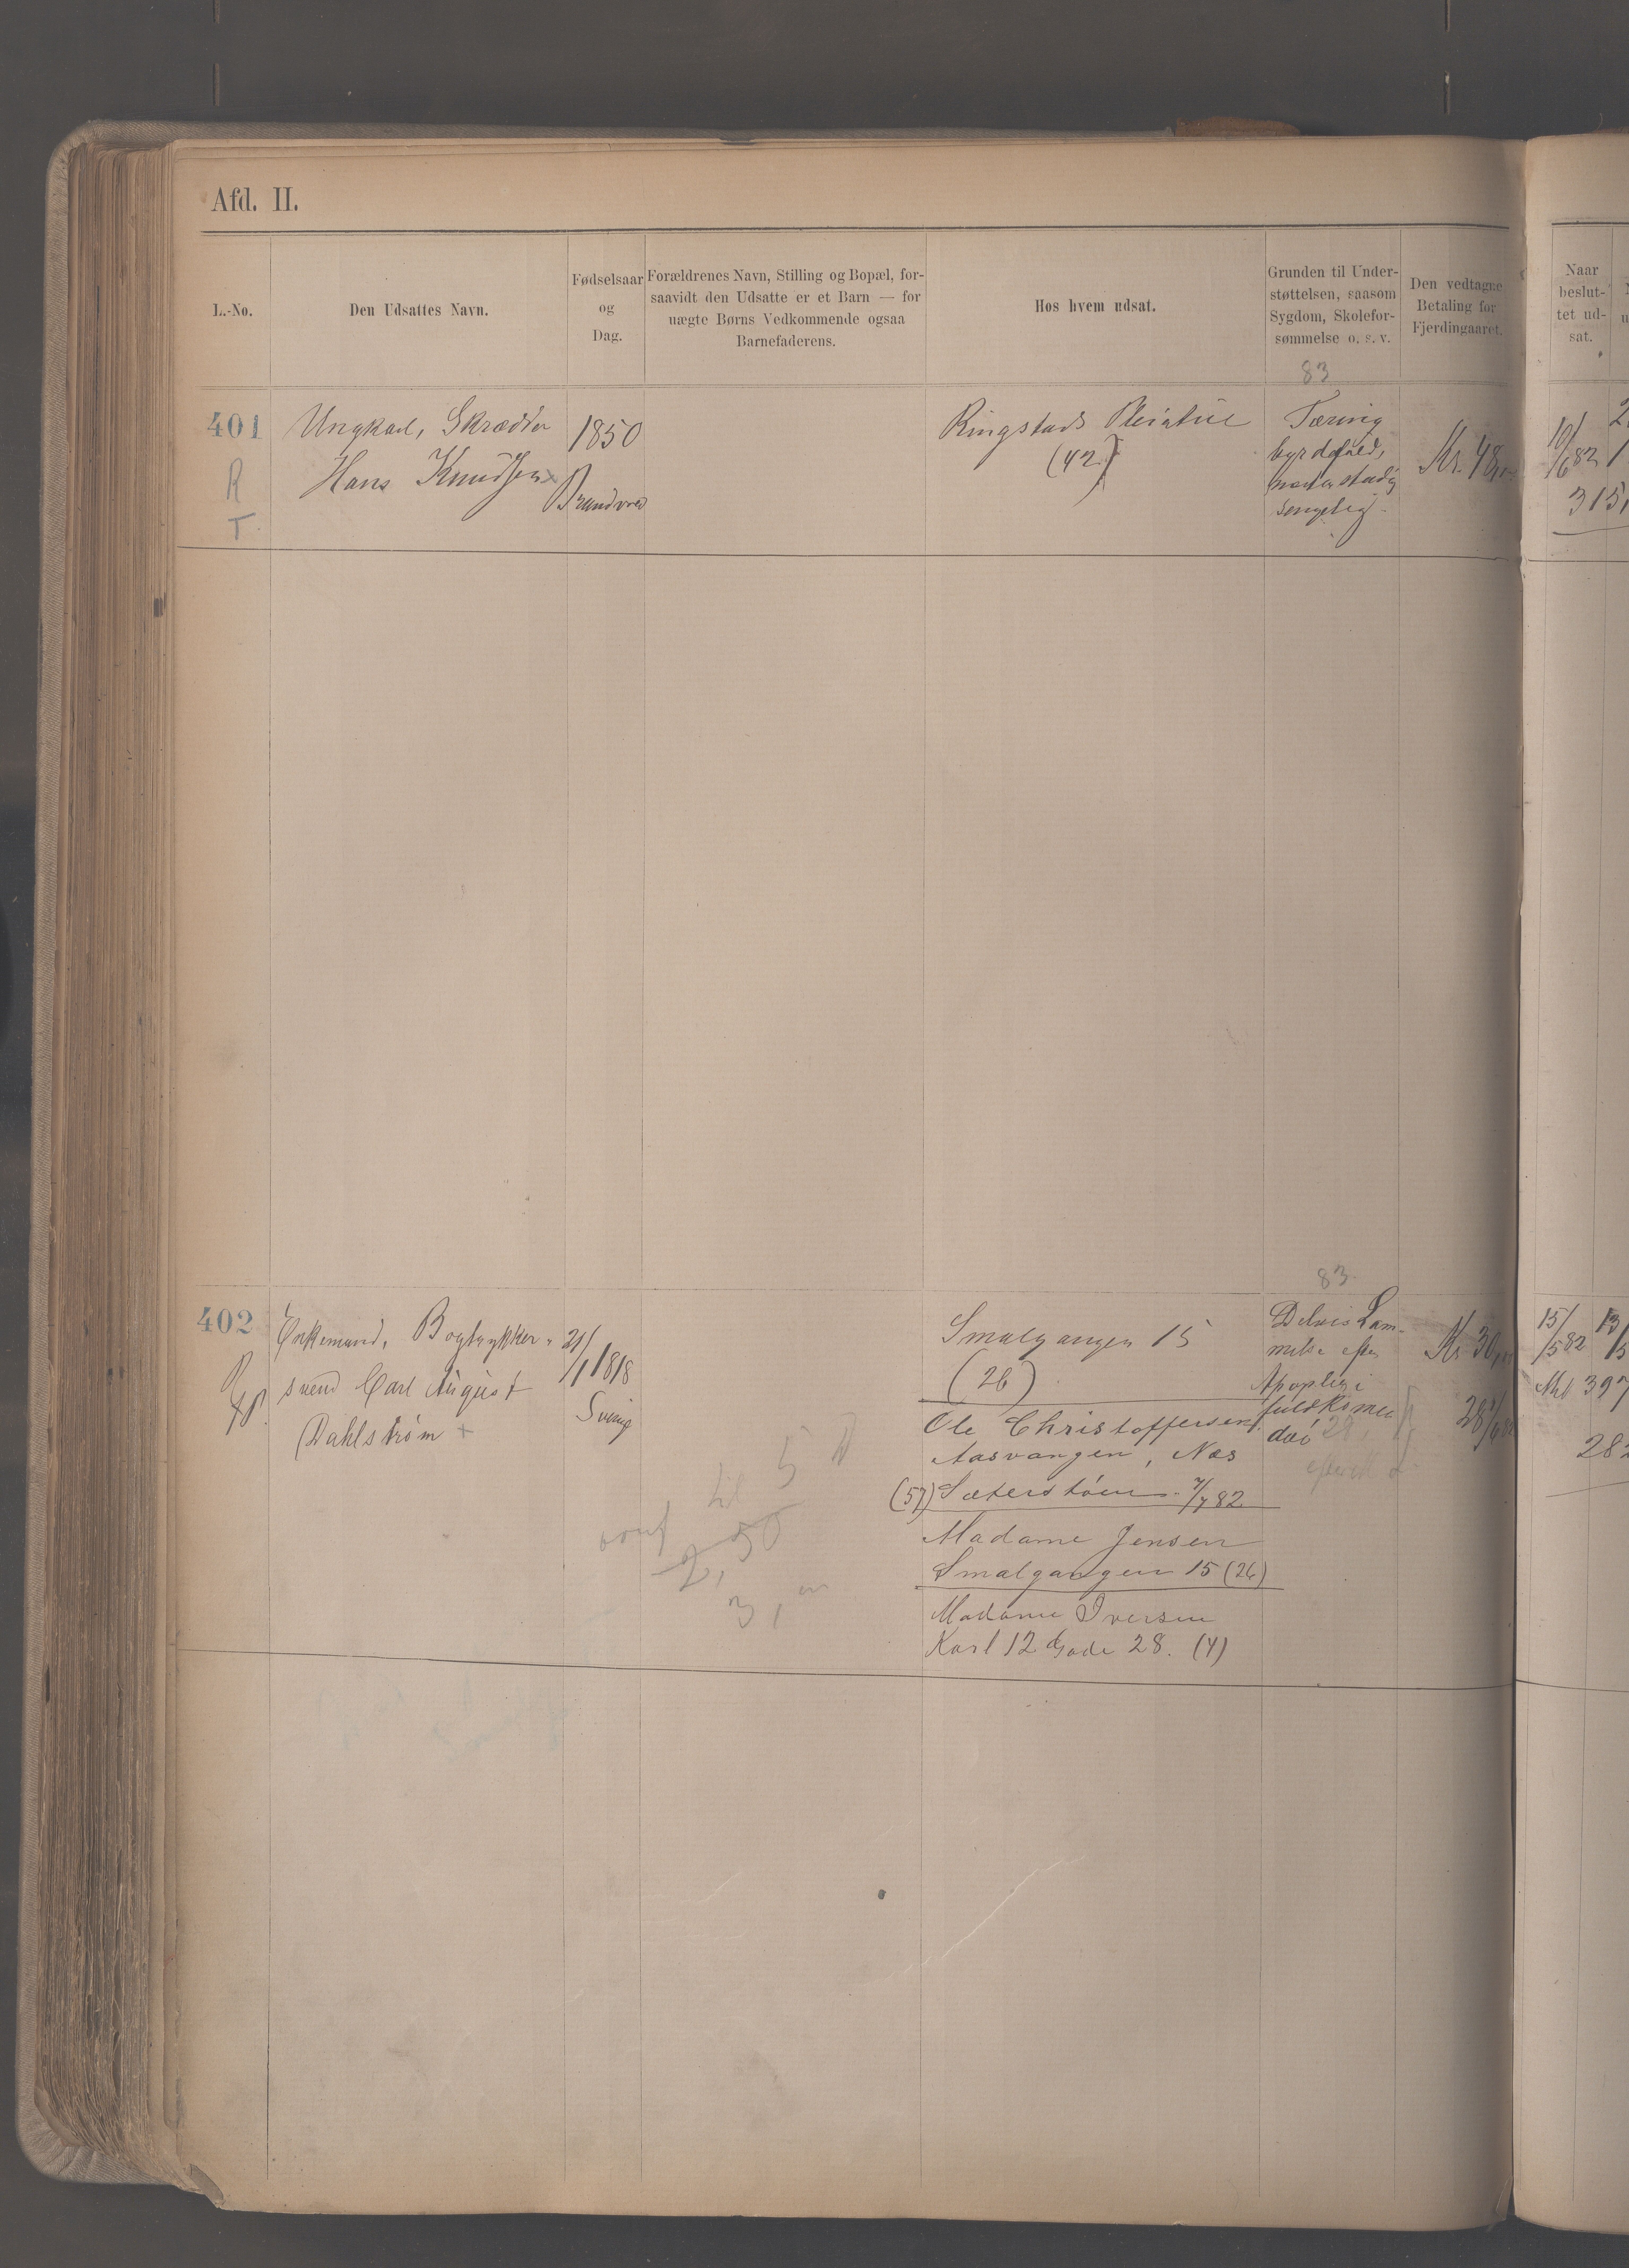 Afd. II.
L.-No.
Den Udsattes Navn.
Fødselsaar
og
Dag.
Forældrenes Navn, Stilling og Bopæl, for-
saavidt den Udsatte er et Barn — for
uægte Børns Vedkommende ogsaa
Barnefaderens.
Hos hvem udsat.
Grunden til Under-
støttelsen, saasom
Sygdom, Skolefor-
sømmelse o. s. v.
Den vedtagne
Betaling for
Fjerdingaaret.
Naar
beslut-
tet ud-
sat.
83
401
R
T.
Ungkarl, Skrædder
Hans Knudsen x
1850
Ringstads Pleiestue
(42)
Tæring
sengelig.
Kr. 48,
10/6 82
315,
83.
402
Enkemand, Bogtrykker-
svend Carl August
Dahlstrøm +
21/1 1818
Sverig
Smalgangen 15
(26)
Ole Christoffersen
Aasvangen, Næs
(57) Sæterstøen 7/7 82
Madame Jensen
Smalgangen 15 (26)
Madame Iversen
Karl 12 Gade 28. (4)
Delvis Lam-
melse efter
Apoplexi
fuldkommen
døv
Kr 30,
15/5 82
til 5
2,50
3,